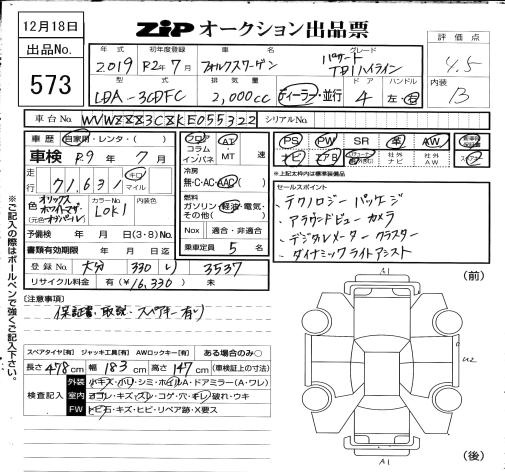 12月18日
出品No.
573
ZiP オークション出品票
評価点
4.5
内装
B
年式 初年度登録 車名 グレード
2019 R2年7月 フォルクスワーゲン パサート TDIハイライン
型式 排気量 ドア ハンドル
LDA-3CDFC 2,000cc ディーラー・並行 4 左・右
車台No. WVWZZZ3CZKE055322 シリアルNo.
車歴 自家用・レンタ・( )
車検 R9年7月
走行 71,631 キロ マイル
色 オリックスホワイトマザーオブパール (元色 ) カラーNo. L0K1 内装色
予備検 年 月 日(3・8)
書類有効期限 年 月 日
フロア コラム インパネ AT・MT 速
冷房 無・C・AC・AAC
燃料 ガソリン・軽油・電気・その他( )
Nox 適合・非適合
乗車定員 5名
PS PW SR 革 AW
ナビ エアB 社外ナビ 社外AW
※上記太枠内は標準装備品
セールスポイント
・テクノロジー パッケージ
・アラウンドビュー カメラ
・デジタルメーター クラスター
・ダイナミック ライトアシスト
登録No. 大分 330 3537
リサイクル料金 有(¥16,330) 未
[注意事項]
保証書・取説・スペアキー有り
スペアタイヤ[有] ジャッキ工具[有] AWロックキー[有] ある場合のみ○
長さ478cm 幅183cm 高さ147cm (車検証上の寸法)
検査記入
外装 小キズ・ハリ・シミ・ホイルA・ドアミラー(A・ワレ)
室内 ヨゴレ・キズ・スレ・コゲ・穴・キレ・破れ・ウキ
FW トビ石・キズ・ヒビ・リペア跡・X要ス
(前)
A1
U2
A1
(後)
※ご記入の際はボールペンで強くご記入下さい。